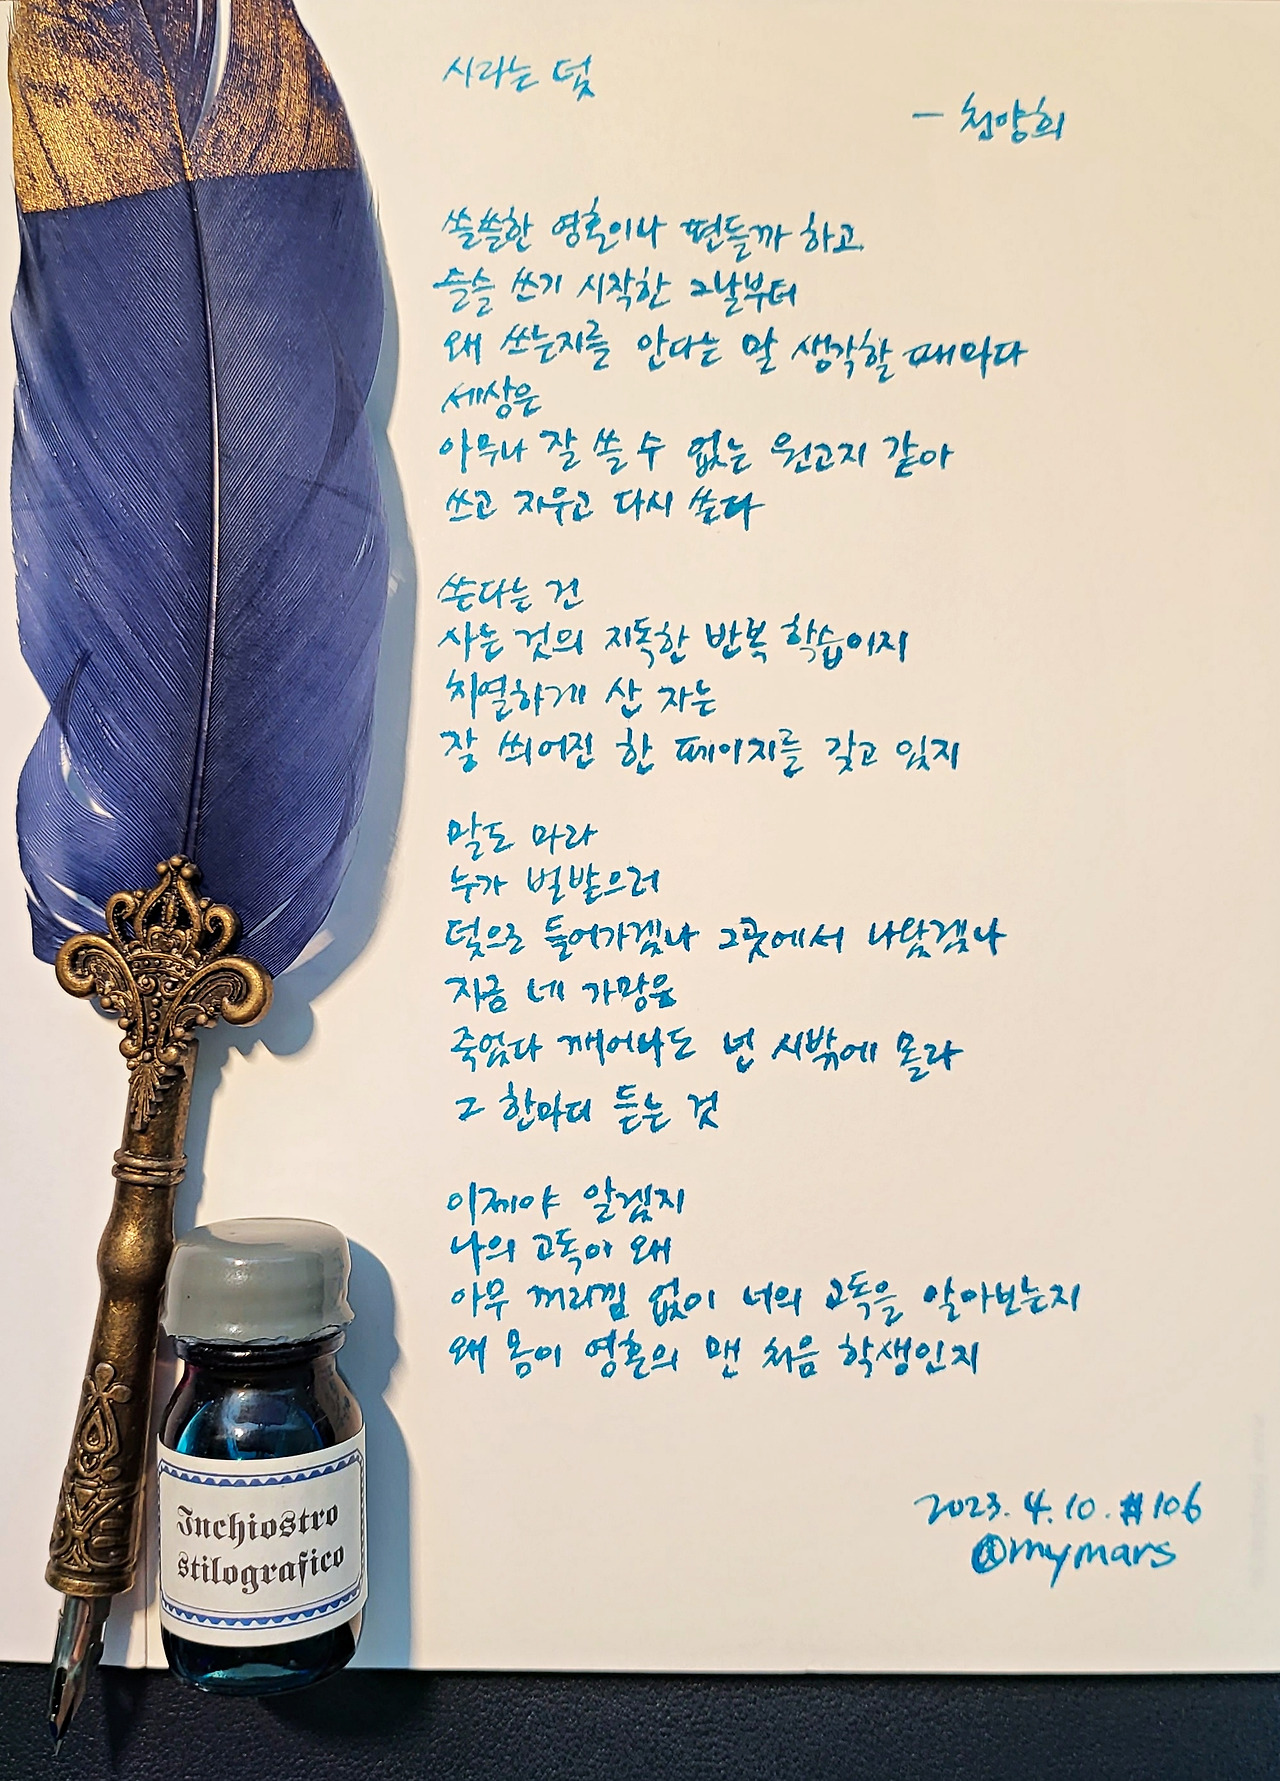 시라는 덫
- 천양희
쓸쓸한 영혼이나 편들까 하고
슬슬 쓰기 시작한 그날부터
왜 쓰는지를 안다는 말 생각할 때마다
세상은
아무나 잘 쓸 수 없는 원고지 같아
쓰고 지우고 다시 쓴다
쓴다는 건
사는 것의 지독한 반복 학습이지
치열하게 산 자는
잘 씌어진 한 페이지를 갖고 있지
말도 마라
누가 벌받으러
덫으로 들어가겠나 그곳에서 나왔겠나
지금 네 가망은
죽었다 깨어나도 넌 시밖에 몰라
그 한마디 듣는 것
이제야 알겠지
나의 고독이 왜
아무 꺼리낌 없이 너의 고독을 알아보는지
왜 몸이 영혼의 맨 처음 학생인지
2023.4.10.#106
@mymars
Inchiostro
stilografico